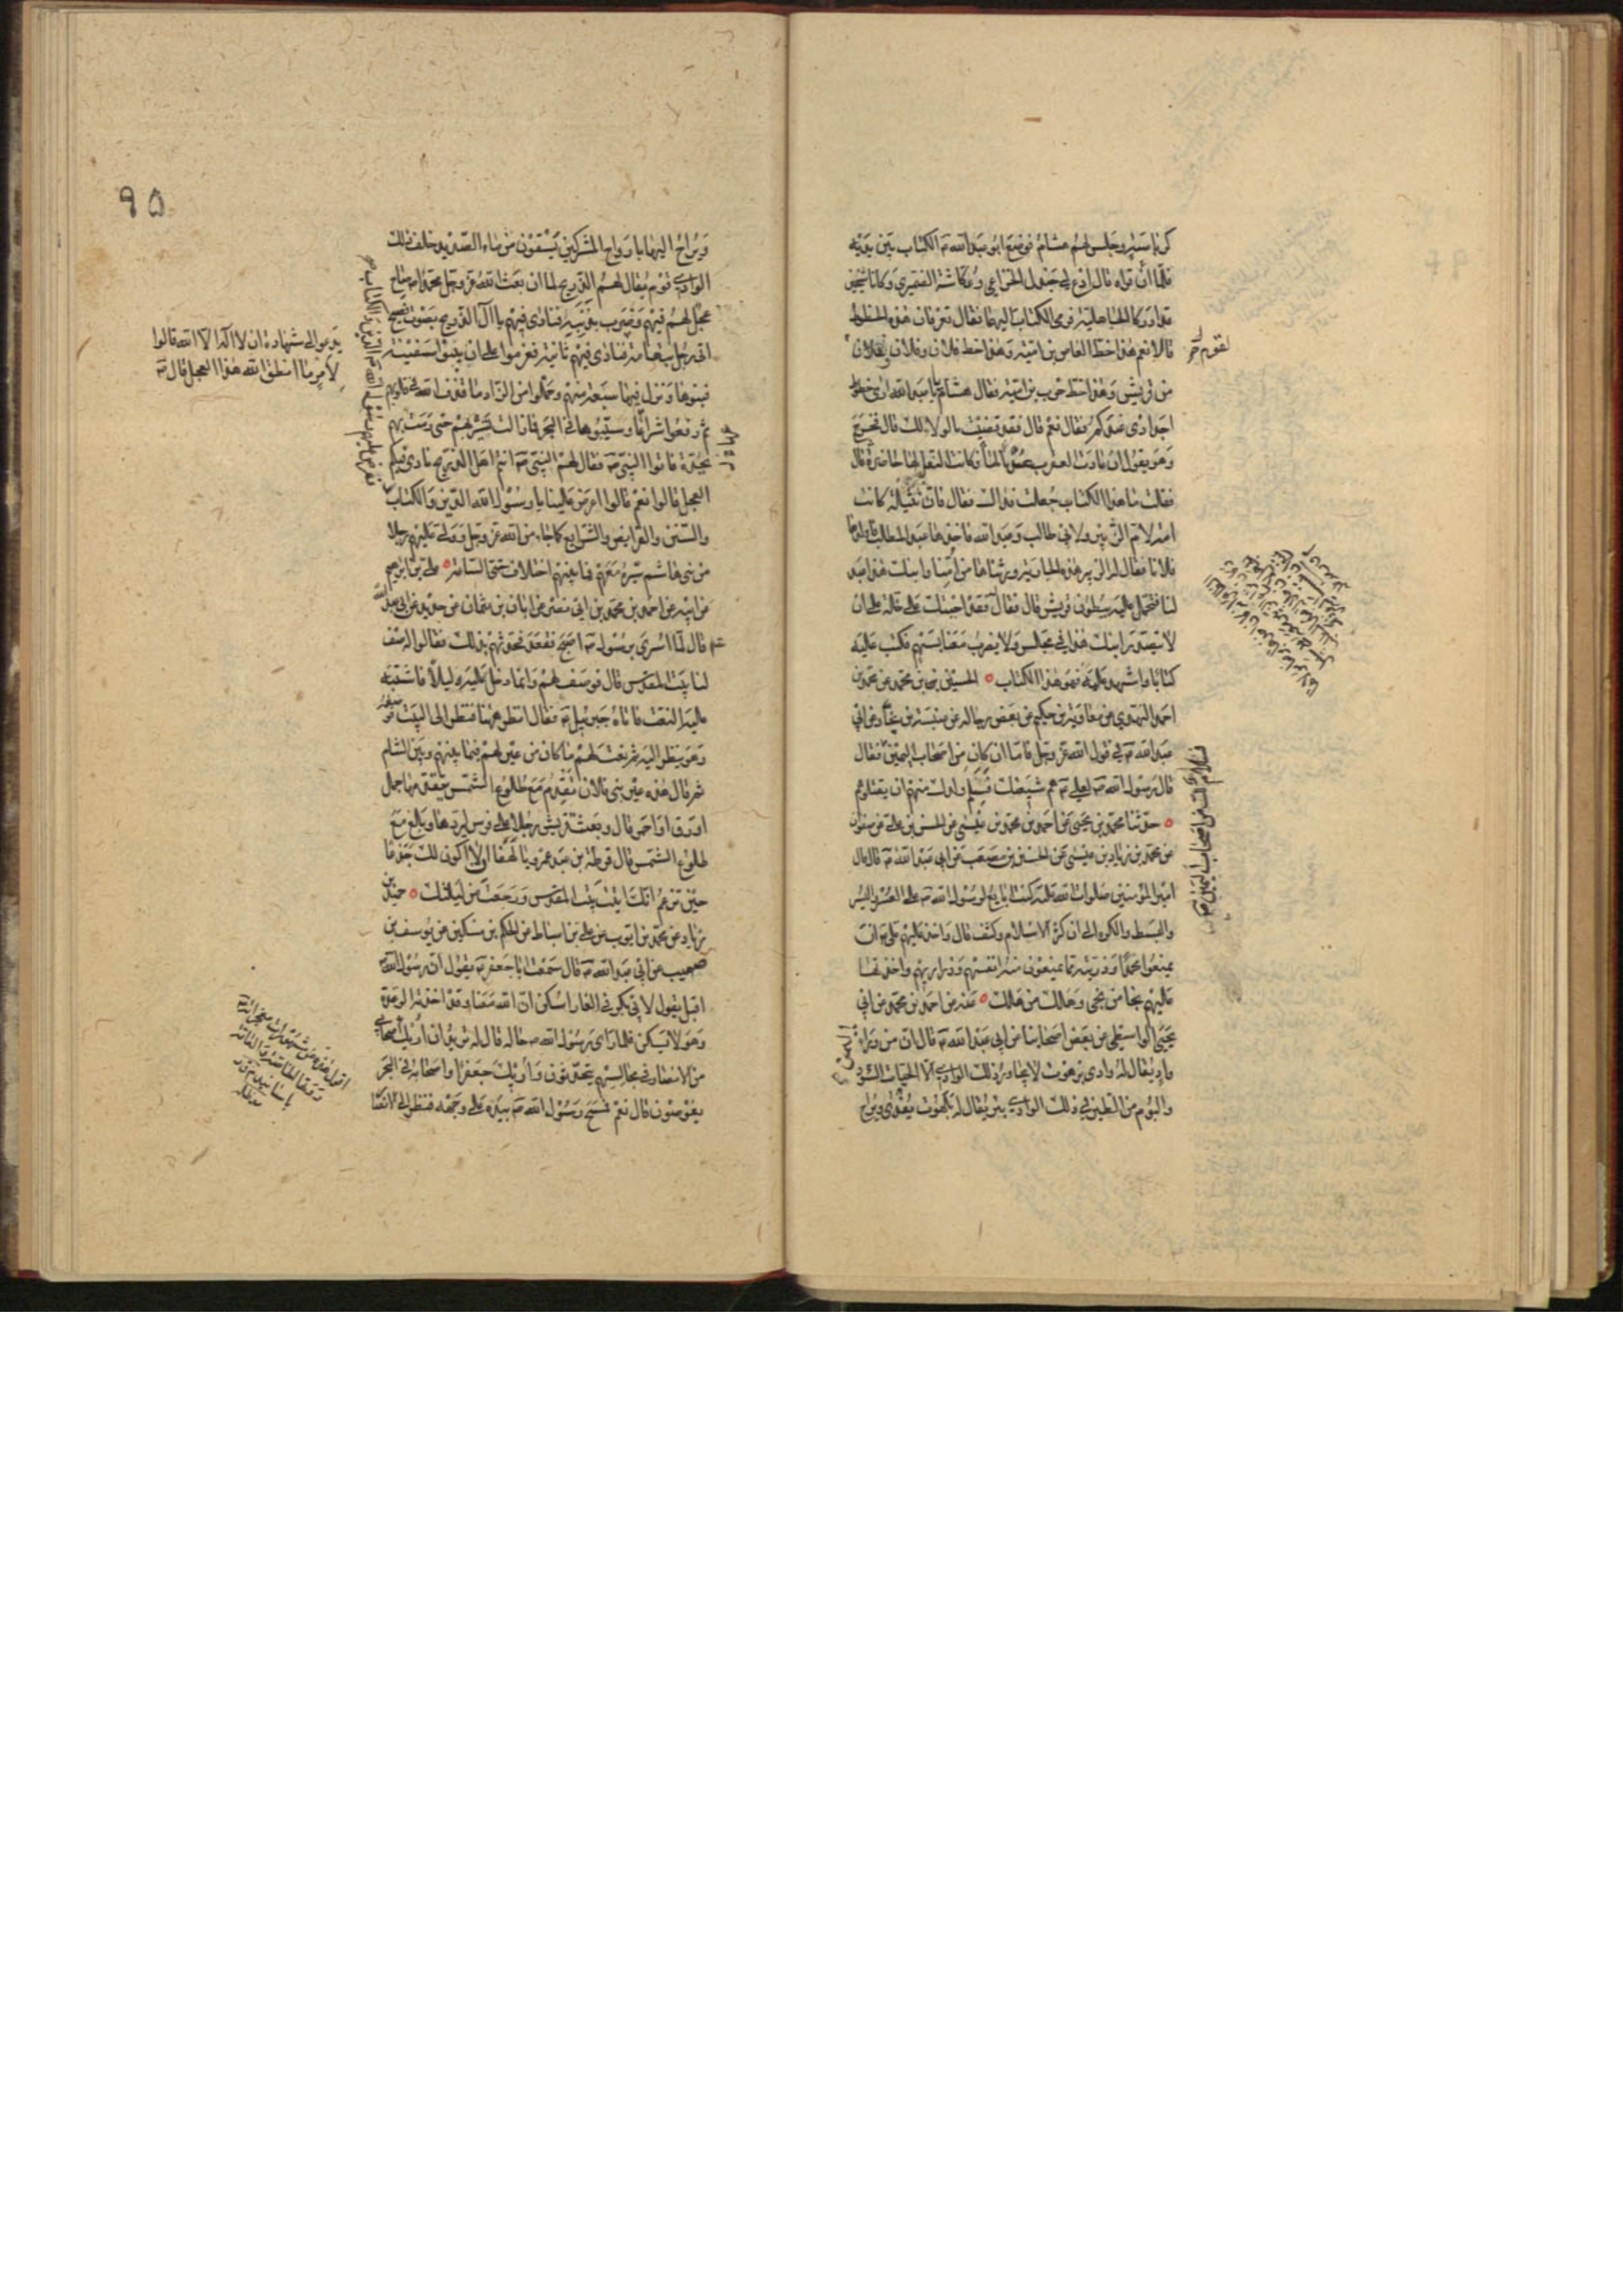 كرباسيه وجلس لهم هشام فوضع ابو عبد الله ع الكتاب بين يديه
فلما أن قراه قال ادع لي جندل الخزاعي وعكاشة الضميري وكانا شيخين
قد ادركا الجاهلية فرمى الكتاب اليهما فقال تعرفان هذه الخطوط
قالا نعم هذا خط العاص بن امية وهذا خط فلان وفلان لفلان
من قريش وهذا خط حرب بن امية فقال هشام يا با عبد الله ارى خطوط
اجدادى عندكم فقال نعم قال فقد قضيت بالولاء لك قال فخرج
وهو يقول ان عادت العقرب عدنا لها وكانت النعل لها حاضرة قال
فقلت ما هذا الكتاب جعلت فداك فقال فان نثيلة كانت
امة لام الزبير ولابي طالب وعبد الله فاخذها عبد المطلب فاولدها
فلانا فقال له الزبير هذه الجارية ورثناها من امنا وابنك هذا عبد
لنا فتحمل عليه ببطون قريش قال فقال قد اجبتك على خلة على ان
لا يتصدر ابنك هذا في مجلس ولا يضرب معنا بسهم فكتب عليه
كتابا واشهد عليه فهو هذا الكتاب ० الحسين بن محمد عن محمد بن
احمد النهدي عن معاوية بن حكيم عن بعض رجاله عن عنبسة بن بجاد عن ابي
عبد الله ع في قول الله عز وجل فاما ان كان من اصحاب اليمين فقال
قال رسول الله ص لعلي ع هم شيعتك فسلم ولدك منهم ان يقتلوهم
० حدثنا محمد بن يحيى عن احمد بن محمد بن عيسى عن الحسن بن علي عن صفوان
عن محمد بن زياد بن عيسى عن الحسين بن مصعب عن ابي عبد الله ع قال قال
امير المؤمنين صلوات الله عليه كنت ابايع لرسول الله ص على العسر واليسر
والبسط والكره الى ان كثر الاسلام وكثف قال واخذ عليهم علي ع ان
يمنعوا محمدا وذريته مما يمنعون منه انفسهم وذراريهم واخذتها
عليهم نجا من نجى وهلك من هلك ० عنه عن احمد بن محمد عن ابي
يحيى الواسطي عن بعض اصحابنا عن ابي عبد الله ع قال ان من وراء اليمن
واد يقال له وادى برهوت لا يجاور ذلك الوادي الا الحيات السود
والبوم من الطير في ذلك الوادي بئر يقال له بلهوت يغدى ويراح
لقوم آخر
فسلام لك من اصحاب اليمين
٩٥
ويراح اليها بارواح المشركين يسقون من ماء الصديد خلف ذلك
الوادي قوم يقال لهم الذريح لما ان بعث الله عز وجل محمدا ص صاح
عجل لهم فيهم وضرب بذنبه فنادى فيهم يا آل الذريح بصوت فصيح
اتى رجل بتهامة فنادى فيهم ثانية فعزموا على ان يبنوا سفينة
فبنوها ونزل فيها سبعة منهم وحملوا من الزاد ما قذف الله في قلوبهم
ثم رفعوا شراعا وسيبوها في البحر فما زالت تسير بهم حتى رمت بهم
بجدة فاتوا النبي ص فقال لهم النبي ص انتم اهل الذريح نادى فيكم
العجل قالوا نعم قالوا اعرض علينا يا رسول الله الدين والكتاب
والسنن والفرايض والشرايع كما جاء من الله عز وجل وولى عليهم رجلا
من بني هاشم سيره معهم فما بينهم اختلاف حتى الساعة ० علي بن ابرهيم
عن ابيه عن احمد بن محمد بن ابي نصر عن ابان بن عثمان عن حديد عن ابي عبد الله
ع قال لما اسرى برسول الله ص اصبح فقعد فحدثهم بذلك فقالوا له صف
لنا بيت المقدس قال فوصف لهم وانما دخله ليلا فاشتبه
عليه النعت فاتاه جبرئيل ع فقال انظر ههنا فنظر الى البيت فوصفه
وهو ينظر اليه ثم نعت لهم ما كان من عير لهم فيما بينهم وبين الشام
ثم قال هذه عير بني فلان تقدم مع طلوع الشمس يتقدمها جمل
اورق او احمر قال وبعث قريش رجلا على فرس ليردها وبلغ مع
طلوع الشمس قال قرطة بن عبد عمرو يا لهفا ان لا اكون لك جذعا
حين تزعم انك اتيت بيت المقدس ورجعت من ليلتك ० حميد بن
زياد عن محمد بن ايوب عن علي بن اسباط عن الحكم بن مسكين عن يوسف بن
صهيب عن ابي عبد الله ع قال سمعت ابا جعفر ع يقول ان رسول الله ص
اقبل يقول لابي بكر في الغار اسكن ان الله معنا وقد اخذته الرعدة
وهو لا يسكن فلما راى رسول الله ص حاله قال له تريد ان اريك اصحابي
من الانصار في مجالسهم يتحدثون واريك جعفرا واصحابه في البحر
يغوصون قال نعم فمسح رسول الله ص بيده على وجهه فنظر الى الانصار
يدعو الى شهادة ان لا اله الا الله قالوا
لامر ما انطق الله هذا العجل قال